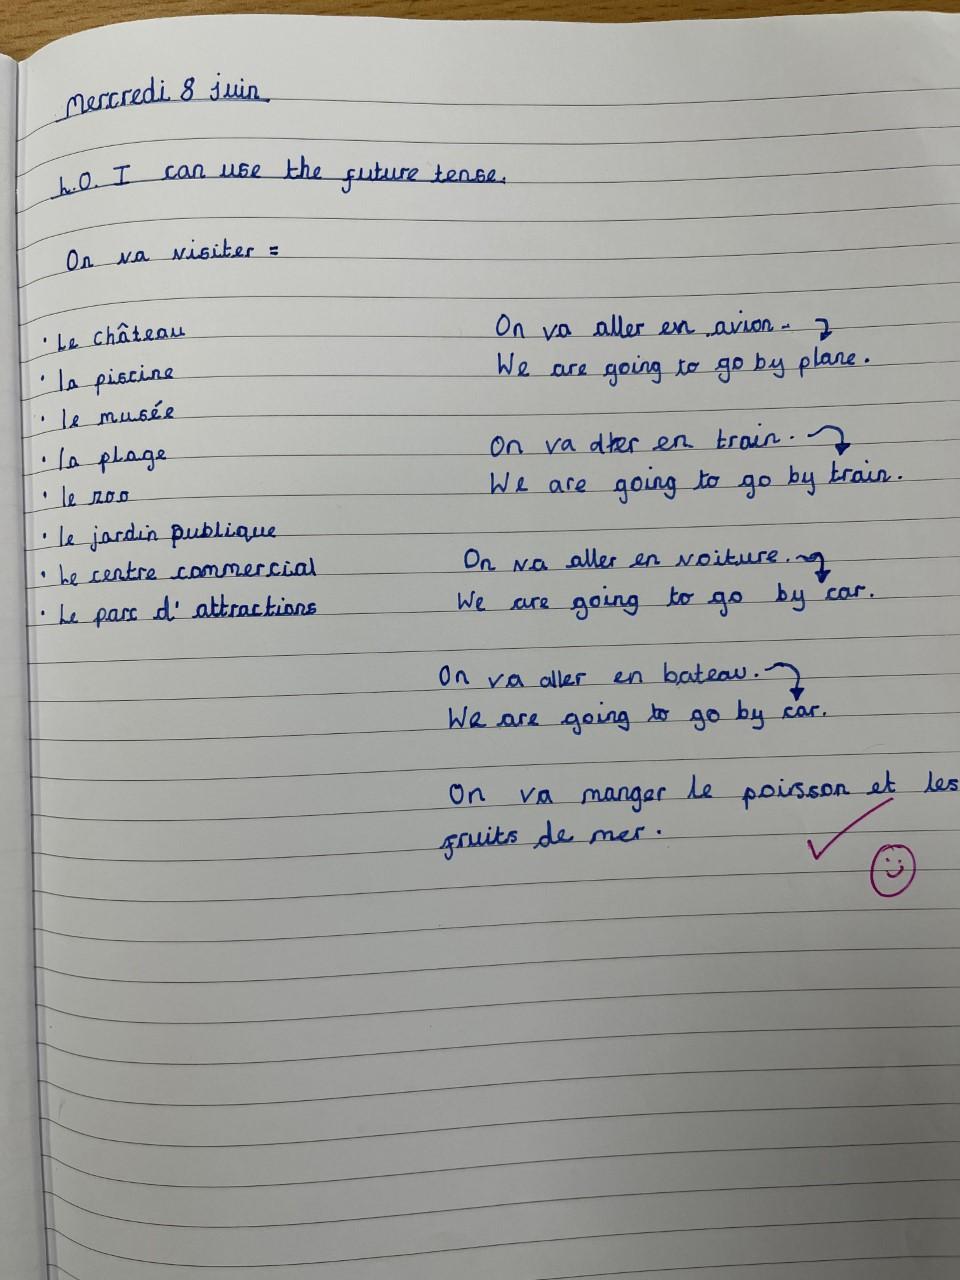 Mercredi 8 juin
L.O. I can use the future tense.
On va visiter =
• Le château
• la piscine
• le musée
• la plage
• le zoo
• le jardin publique
• Le centre commercial
• Le parc d' attractions
On va aller en avion.
We are going to go by plane.
On va aller en train.
We are going to go by train.
On va aller en voiture.
We are going to go by car.
On va aller en bateau.
We are going to go by car.
On va manger le poisson et les
fruits de mer.